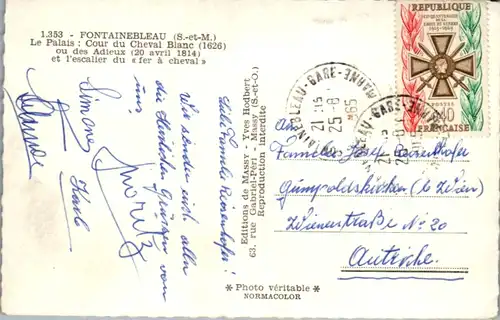 1.353 - FONTAINEBLEAU (S.-et-M.)
Le Palais : Cour du Cheval Blanc (1626)
ou des Adieux (20 avril 1814)
et l'escalier du « fer à cheval »
Liebe Familie
Wir senden euch allen
die herzlichsten Grüße von
uns
Simone
Karl
Editions de MASSY - Yves Hodbert
63, rue Gabriel-Péri - Massy (S.-et-O.)
Reproduction Interdite
* Photo véritable *
NORMACOLOR
REPUBLIQUE
CINQUANTENAIRE
DE LA
CROIX DE GUERRE
1915-1965
POSTES
0,40
FRANÇAISE
FONTAINEBLEAU-GARE
21 H 15
25-6
1965
An
Familie Josef
Gumpoldskirchen (b. Wien)
Wienerstraße No 20
Autriche